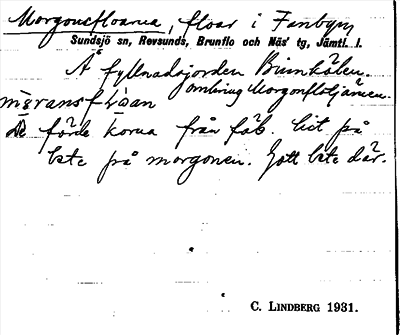 Morgonsfloarna, floar i Fanbyn
Sundsjö sn, Revsunds, Brunflo och Näs' tg, Jämtl. l.
På fyllnadsjorden Binnkölen.
omkring Morgonflotjärnen.
De förde korna från fäb. hit på
bete på morgonen. Gott bete där.
C. LINDBERG 1931.